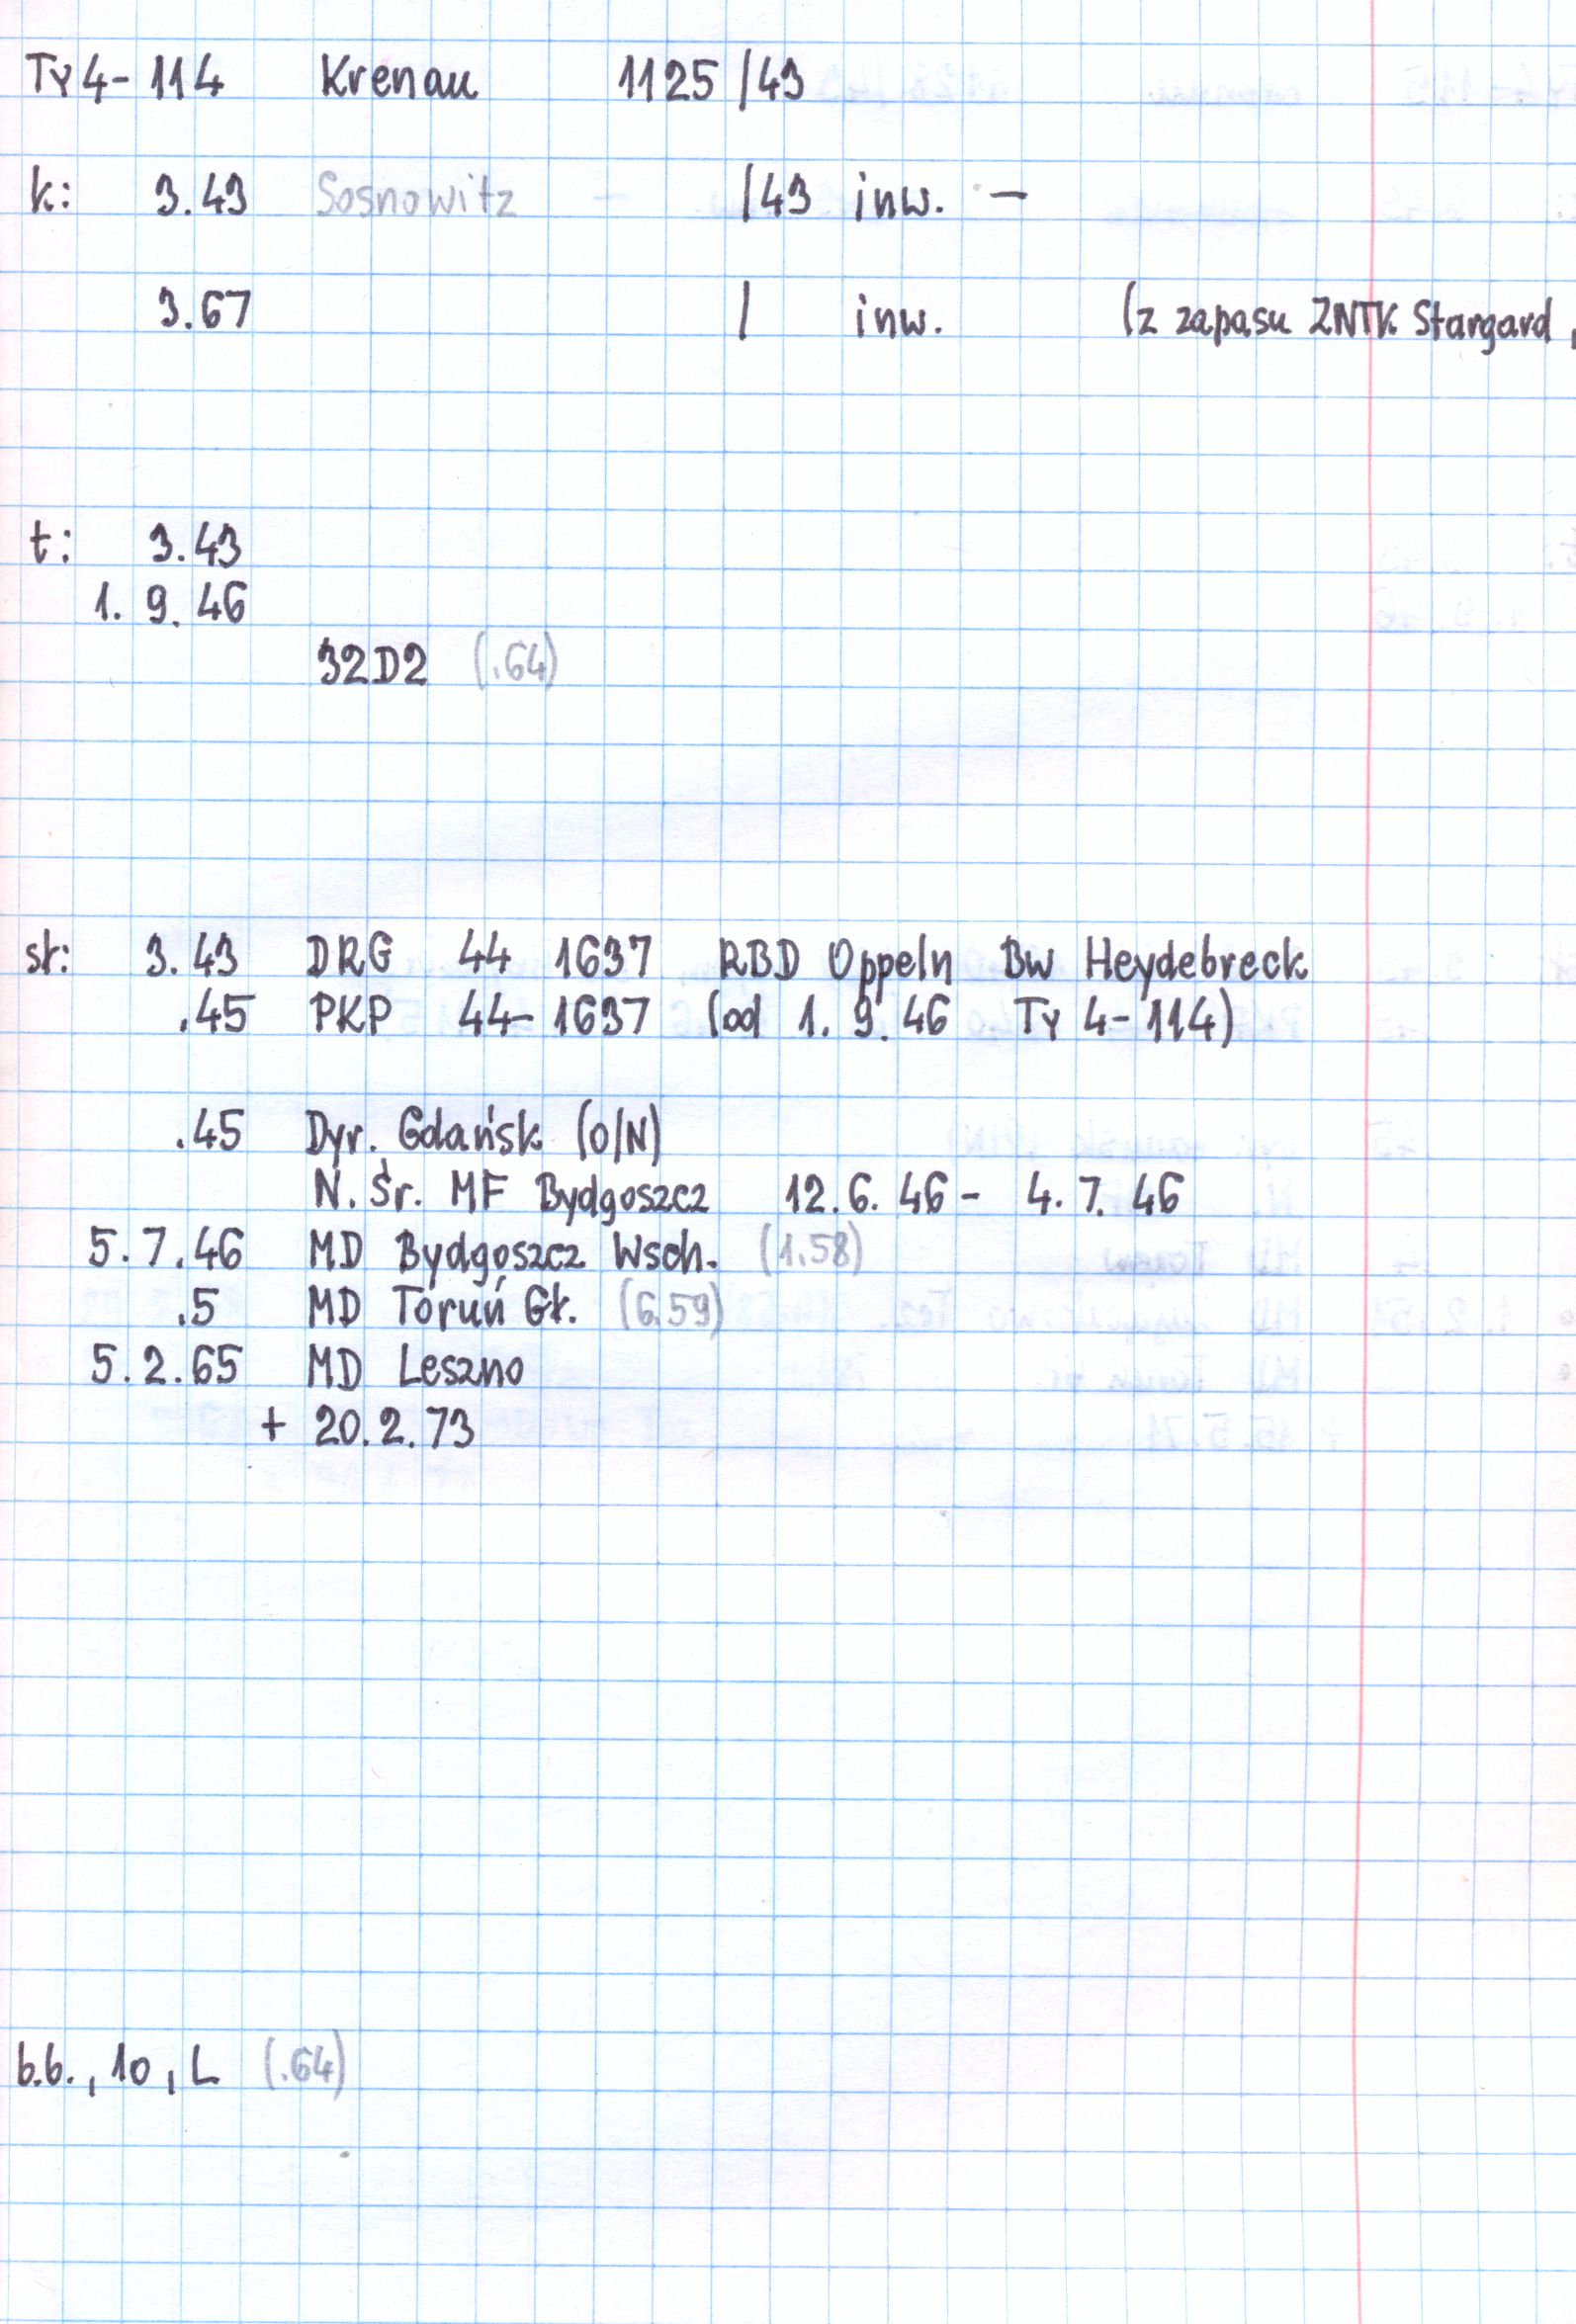 Ty4-114 Krenau 1125/43
k: 3.43 Sosnowitz - /43 inw. -
3.67 / inw. (z zapasu ZNTK Stargard,
t: 3.43
1. 9. 46
32D2 (.64)
st: 3.43 DRG 44 1637 RBD Oppeln Bw Heydebreck
.45 PKP 44-1637 (od 1. 9. 46 Ty 4-114)
.45 Dyr. Gdańsk (O/N)
N. Śr. MF Bydgoszcz 12.6.46 - 4.7.46
5.7.46 MD Bydgoszcz Wsch. (1.58)
.5 MD Toruń Gł. (6.59)
5.2.65 MD Leszno
+ 20.2.73
b.b., 10, L (.64)